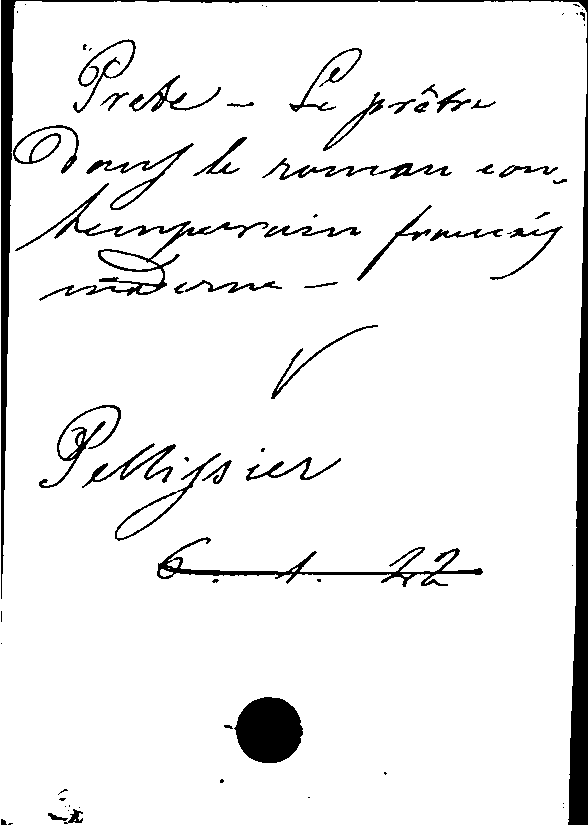 Prete - Le prêtre
dans le roman con-
temporain français
moderne -
V
Pellissier
6. 1. 22